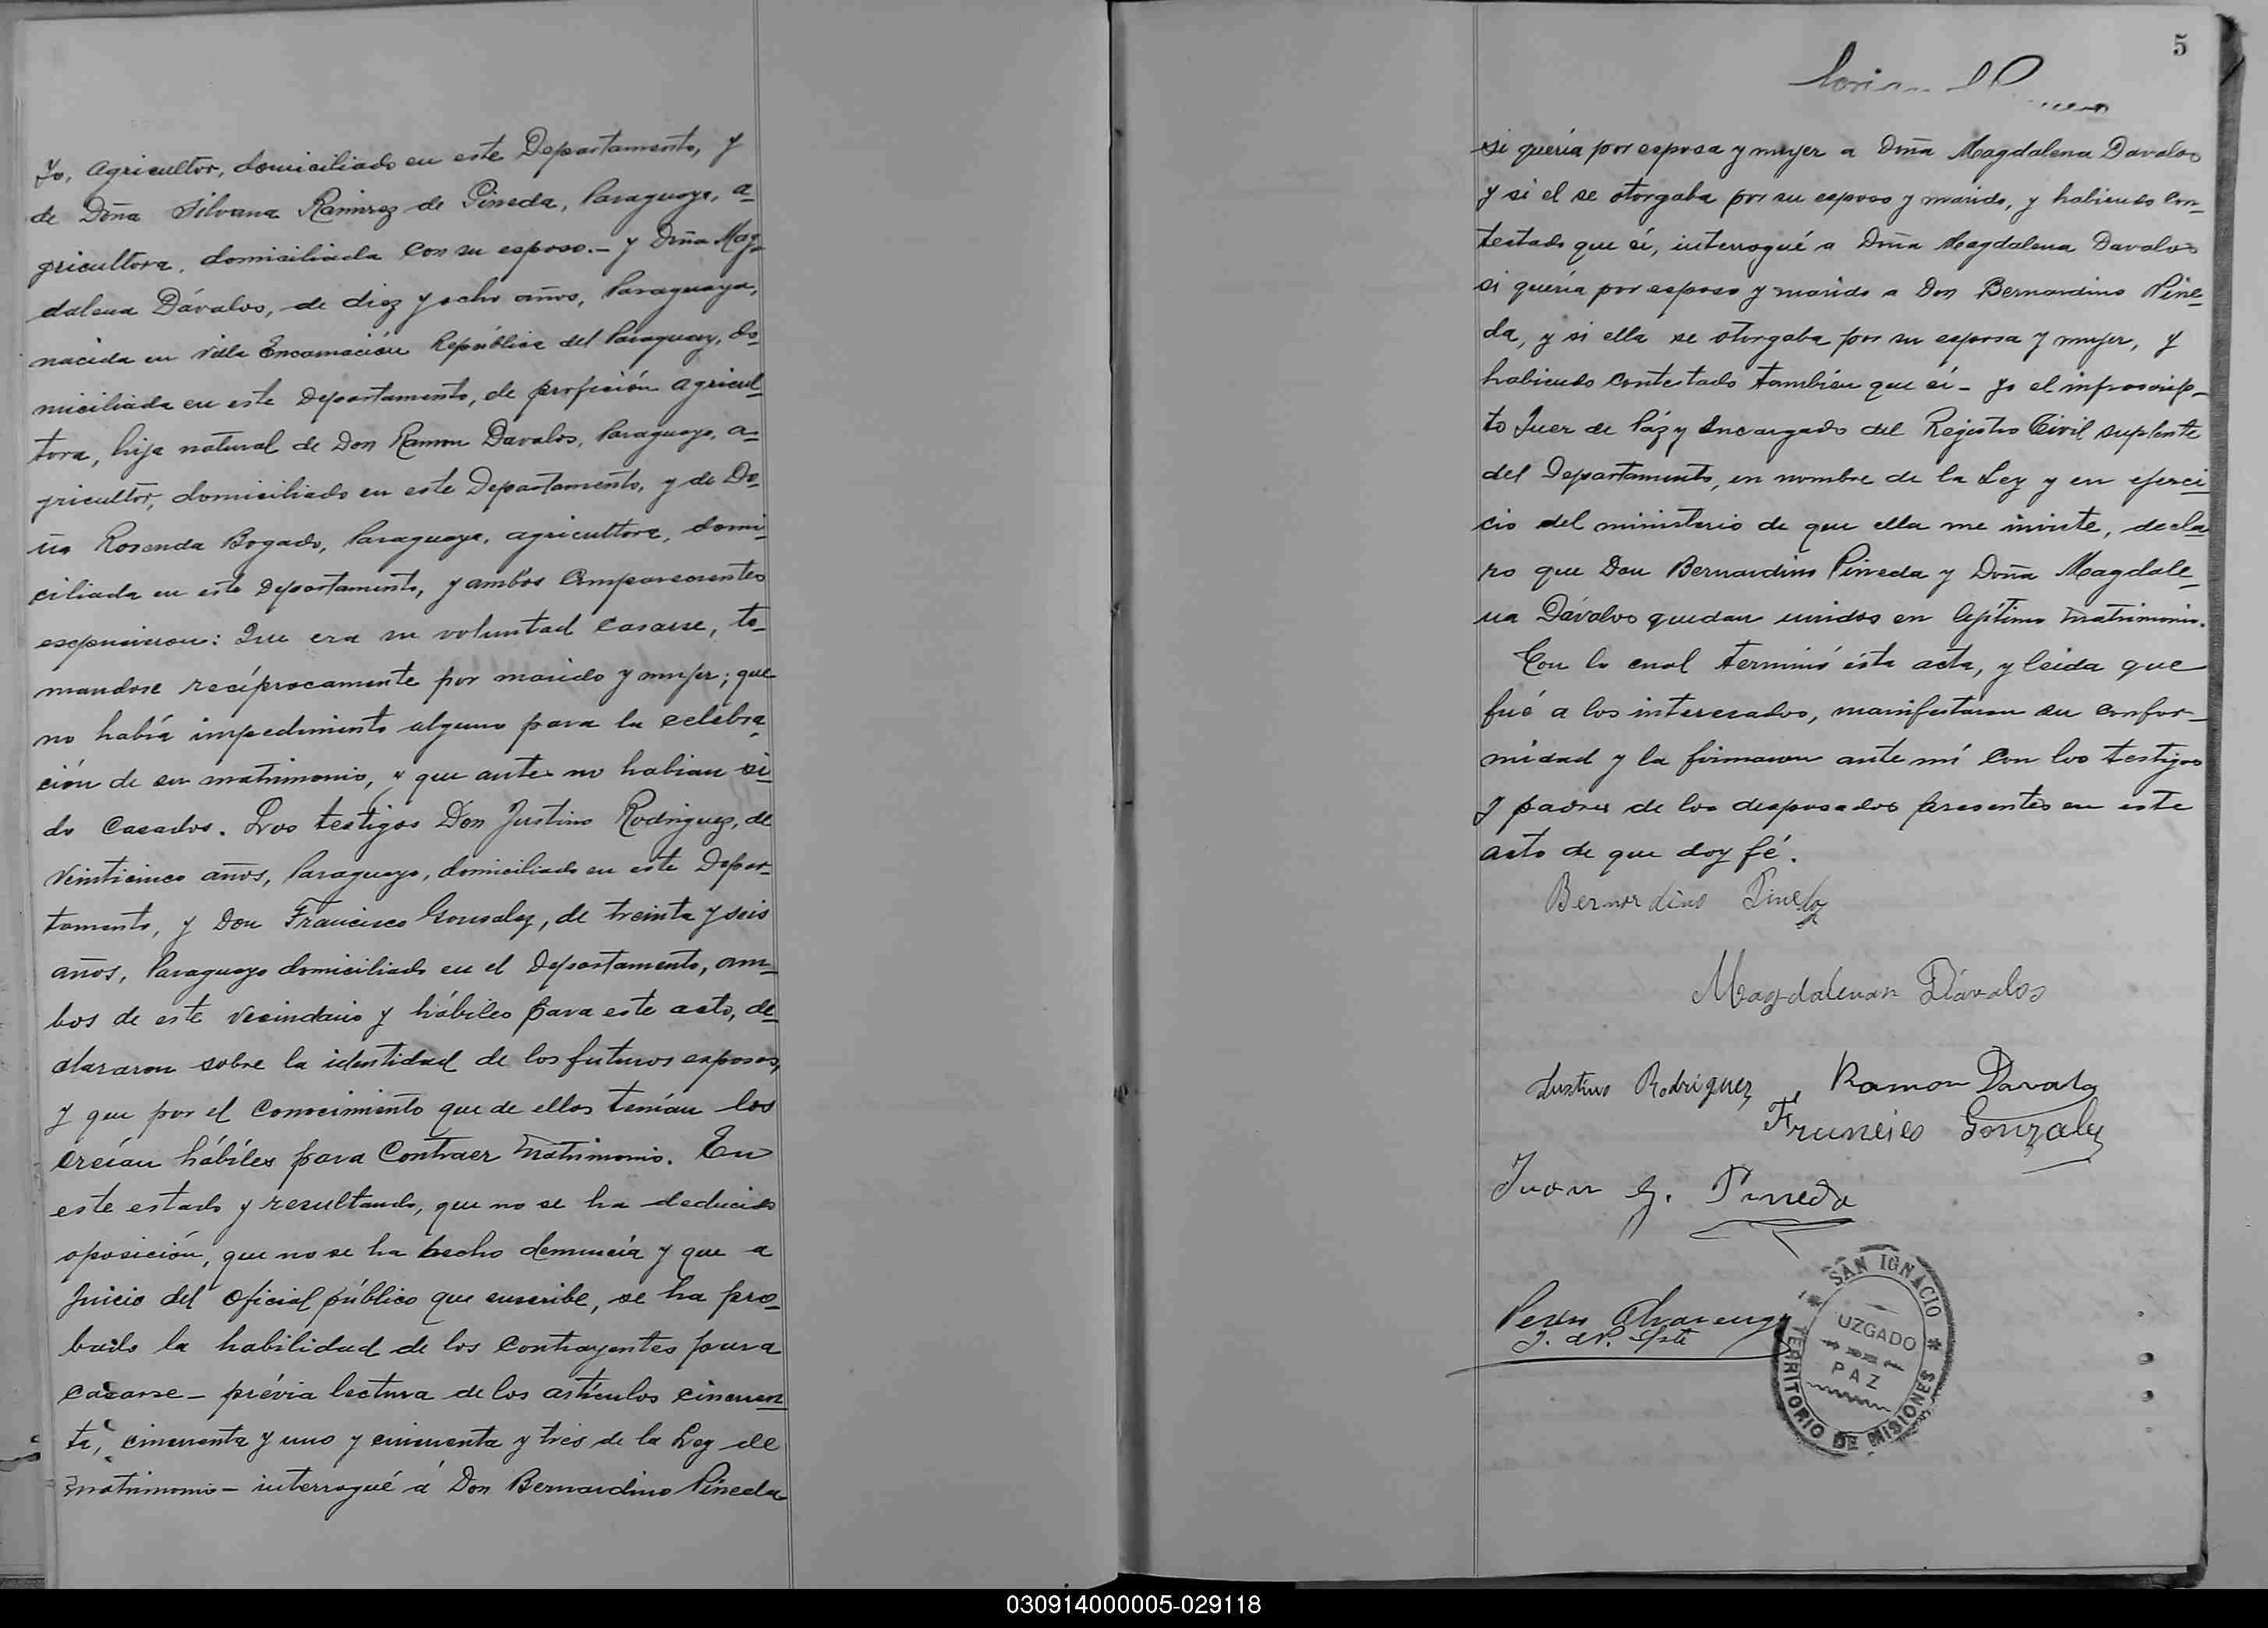 yo, agricultor, domiciliado en este Departamento, y
de Doña Silvana Ramirez de Pineda, Paraguaya, a-
gricultora, domiciliada con su esposo.- y Doña Mag-
dalena Dávalos, de diez y ocho años, Paraguaya,
nacida en Villa Encarnación República del Paraguay, do-
miciliada en este Departamento, de profición agricul-
tora, hija natural de Don Ramon Davalos, Paraguayo, a-
gricultor, domiciliado en este Departamento, y de Do-
ña Rosenda Bogado, Paraguaya, agricultora, domi-
ciliada en este Departamento, y ambos comparecientes
espusieron: Que era su voluntad casarse, to-
mandose recíprocamente por marido y mujer; que
no había impedimento alguno para la celebra-
ción de su matrimonio, y que antes no habian si-
do casados. Los testigos Don Justino Rodriguez, de
veinticinco años, Paraguayo, domiciliado en este Depar-
tamento, y Don Francisco Gonzalez, de treinta y seis
años, Paraguayo domiciliado en el Departamento, am-
bos de este vecindario y hábiles para este acto, de-
clararon sobre la identidad de los futuros esposos,
y que por el conocimiento que de ellos tenían los
creían hábiles para contraer matrimonio. En
este estado y resultando, que no se ha deducido
oposición, que no se ha hecho denuncia y que a
juicio del oficial público que suscribe, se ha pro-
bado la habilidad de los contrayentes para
casarse - prévia lectura de los artículos cincuen-
ta, cincuenta y uno y cincuenta y tres de la Ley de
matrimonio - interrogué á Don Bernardino Pineda
5
si quería por esposa y mujer a Doña Magdalena Davalos
y si el se otorgaba por su esposo y marido, y habiendo con-
testado que sí, interrogué a Doña Magdalena Davalos
si quería por esposo y marido a Don Bernardino Pine-
da, y si ella se otorgaba por su esposa y mujer, y
habiendo contestado también que sí - yo el infrascrip-
to Juez de Páz y Encargado del Registro Civil suplente
del Departamento, en nombre de la Ley y en ejerci-
cio del ministerio de que ella me inviste, decla-
ro que Don Bernardino Pineda y Doña Magdale-
na Dávalos quedan unidos en legítimo matrimonio.
Con lo cual terminó ésta acta, y leida que
fué a los interesados, manifestaron su confor-
midad y la firmaron ante mí con los testigos
y padres de los desposados presentes en este
acto de que doy fé.
Bernardino Pineda
Magdalena Dávalos
Justino Rodriguez
Ramon Davalos
Francisco Gonzalez
Juan G. Pineda
Pedro Alvarenga
J. de P. Spte
SAN IGNACIO
JUZGADO
DE
PAZ
TERRITORIO DE MISIONES
030914000005-029118